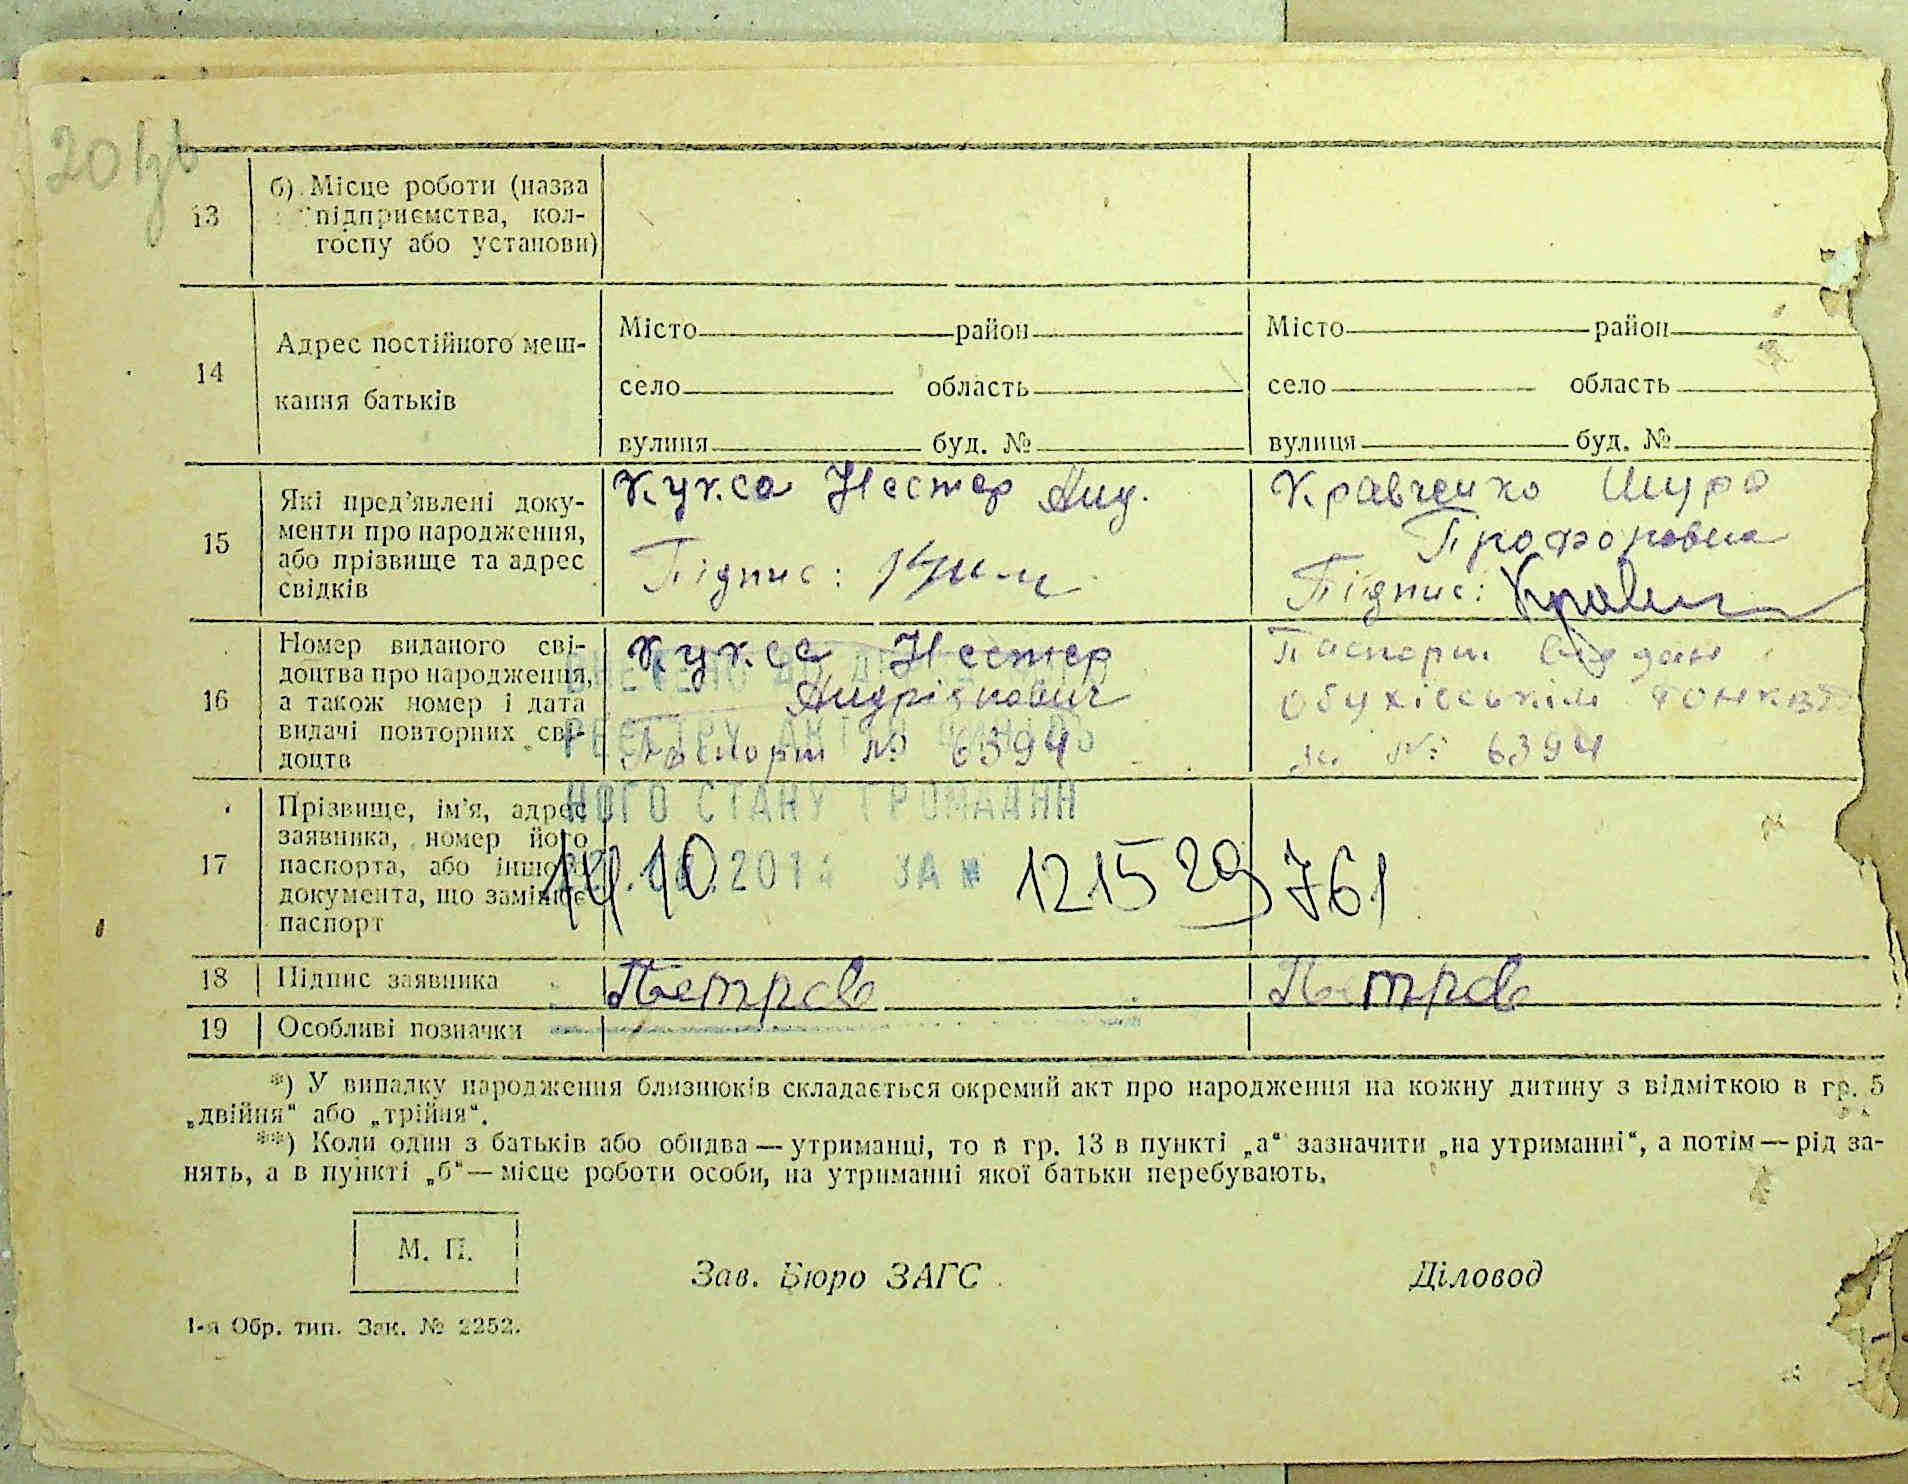 20 зв
13
б) Місце роботи (назва
підприємства, кол-
госпу або установи)
14
Адрес постійного меш-
кання батьків
Місто район
село область
вулиця буд. №
Місто район
село область
вулиця буд. №
15
Які пред’явлені доку-
менти про народження,
або прізвище та адрес
свідків
Кукса Нестер Анд.
Підпис:
Кравченко Шура
Трофоровна
Підпис:
16
Номер виданого сві-
доцтва про народження,
а також номер і дата
видачі повторних сві-
доцтв
Кукса Нестер
Андріянович
Паспорт № 6394
Паспорт
Обухівським
за №: 6394
ВНЕСЕНО ДО
РЕЄСТРУ АКТІВ
НОГО СТАНУ ГРОМАДЯН
201 ЗА №
14 10 1215 29 761
17
Прізвище, ім’я, адрес
заявника, номер його
паспорта, або іншого
документа, що замінює
паспорт
18 Підпис заявника Петров Петров
19 Особливі позначки
*) У випадку народження близнюків складається окремий акт про народження на кожну дитину з відміткою в гр. 5
„двійня“ або „трійня“.
**) Коли один з батьків або обидва — утриманці, то в гр. 13 в пункті „а“ зазначити „на утриманні“, а потім — рід за-
нять, а в пункті „б“ — місце роботи особи, на утриманні якої батьки перебувають.
М. П.
Зав. Бюро ЗАГС Діловод
1-я Обр. тип. Зак. № 2252.